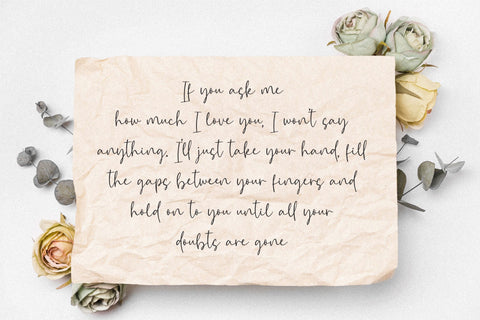 If you ask me
how much I love you, I won't say
anything. I'll just take your hand, fill
the gaps between your fingers and
hold on to you until all your
doubts are gone